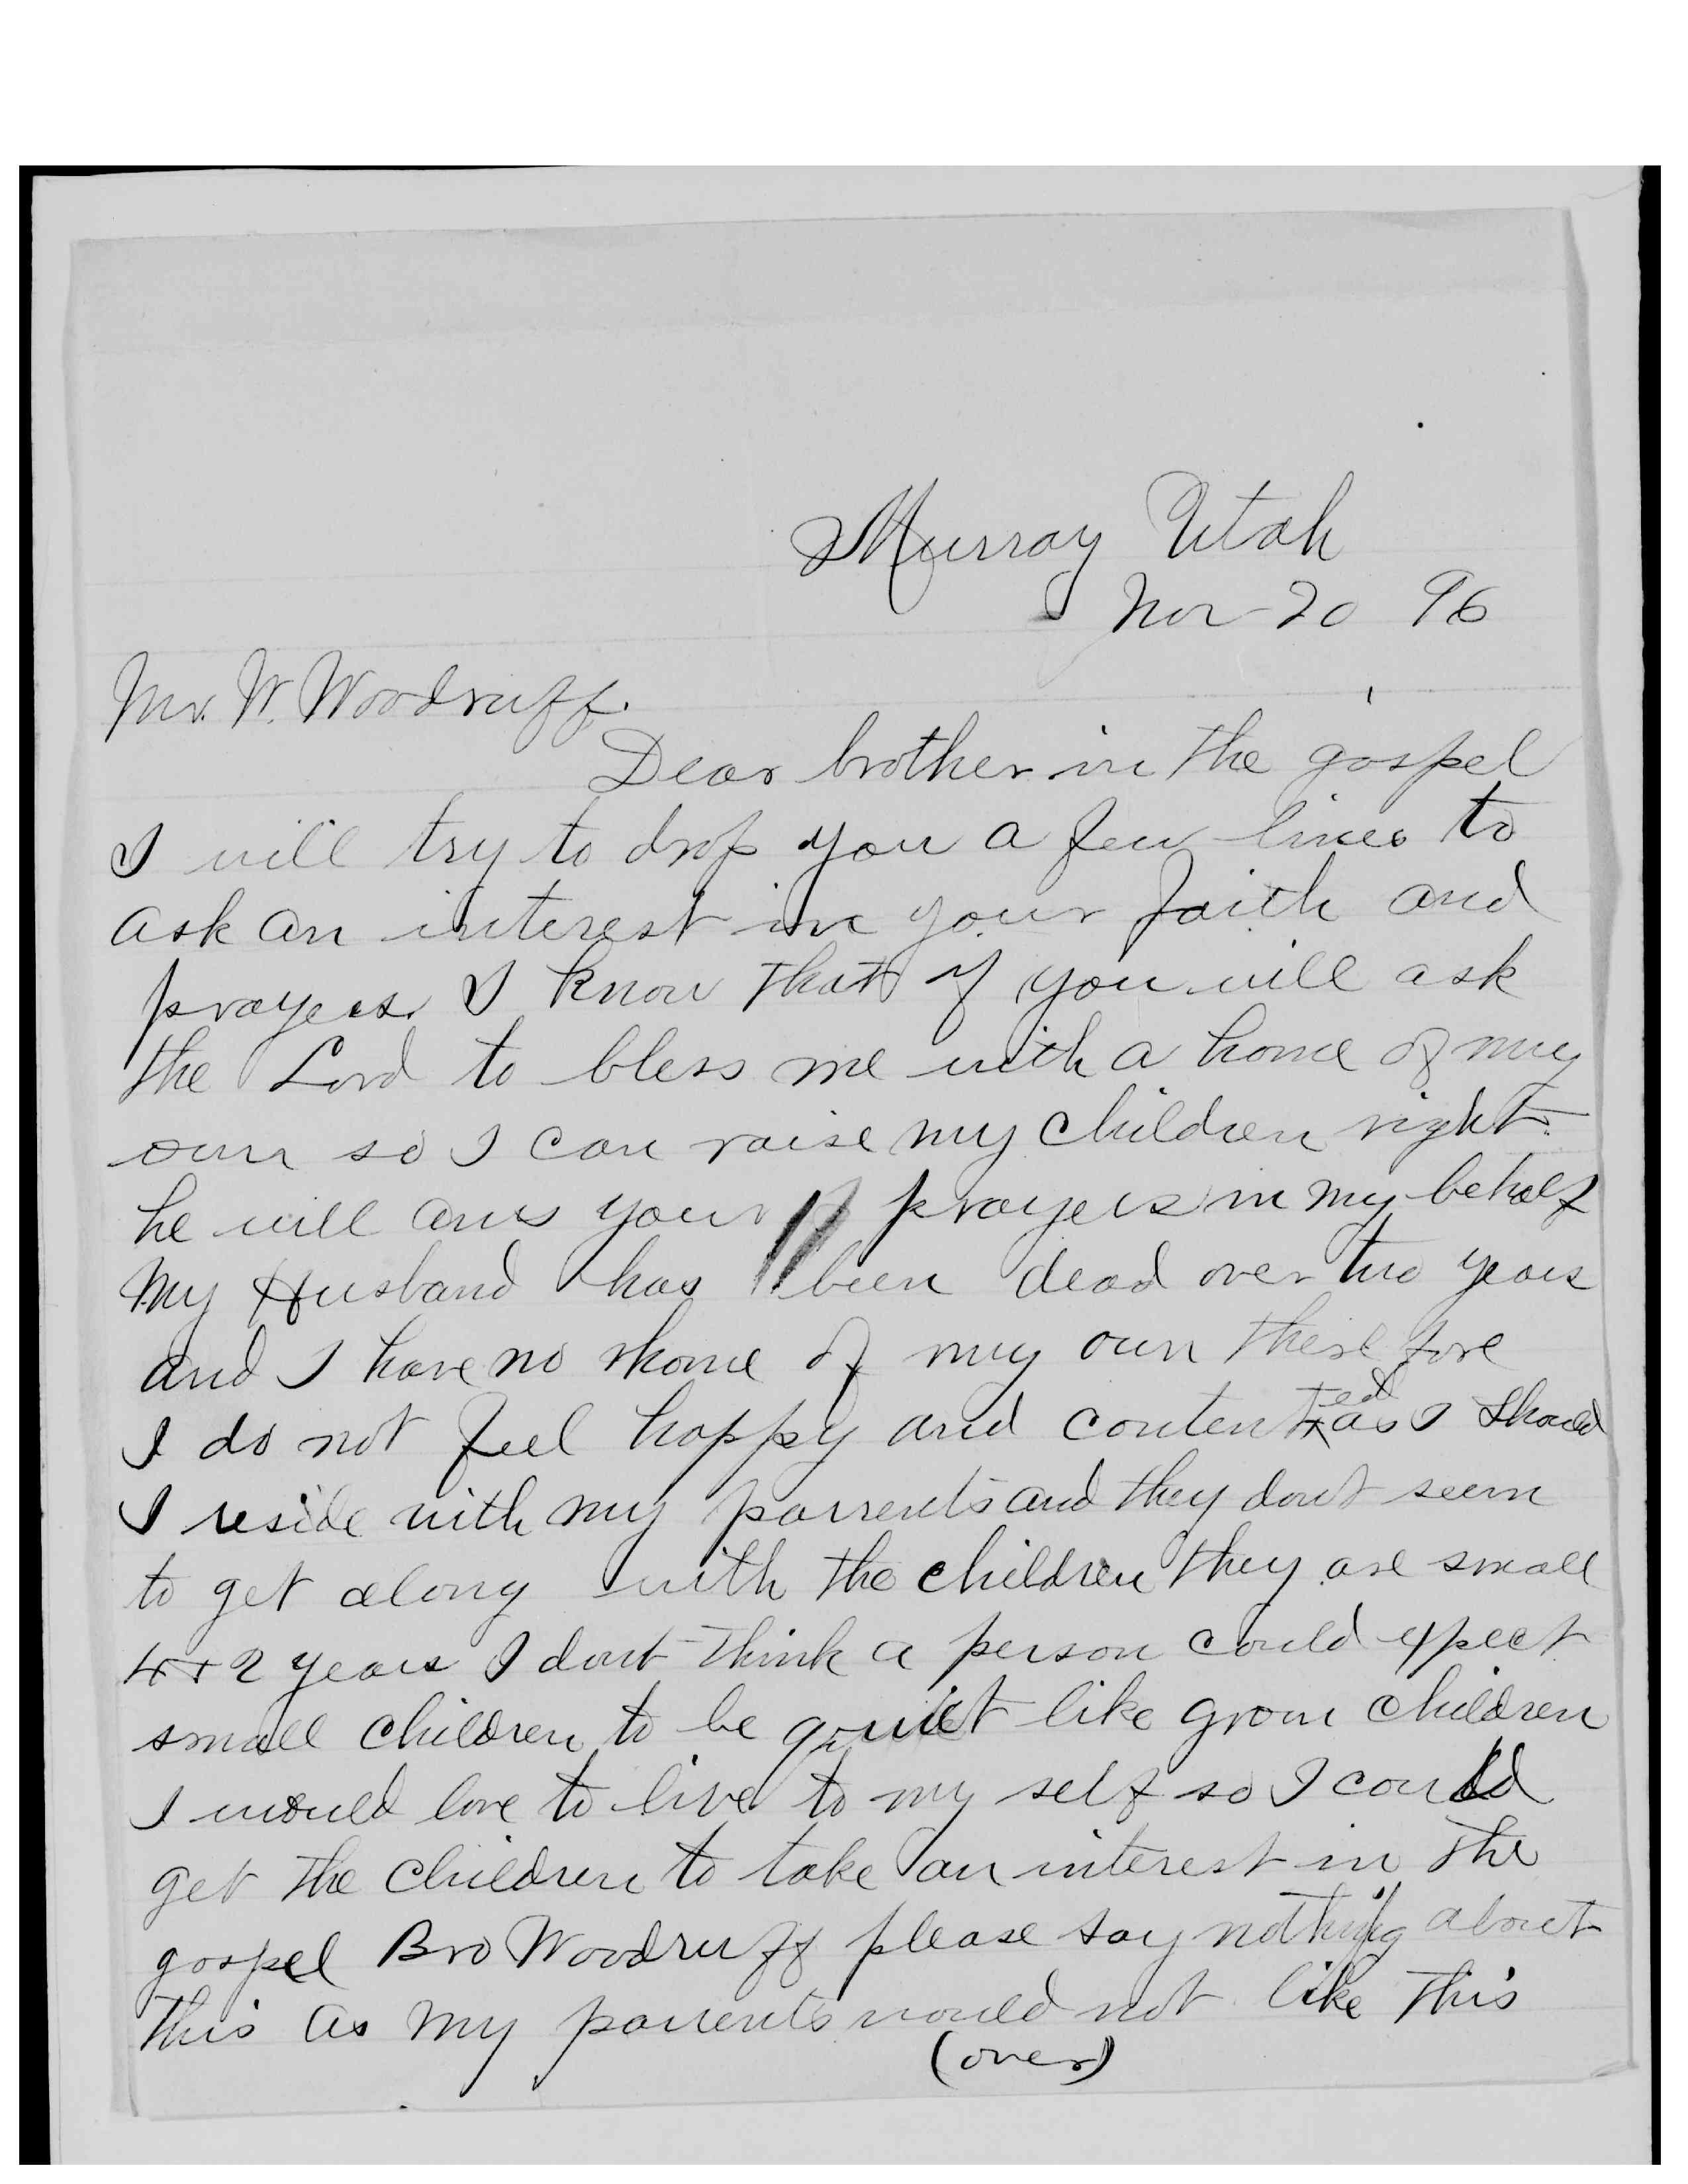 Murray Utah
Nov 20 96
Mr. W. Woodruff.
Dear brother in the gospel
I will try to drop you a few lines to
ask an interest in your faith and
prayers. I know that if you will ask
the Lord to bless me with a home of my
own so I can raise my children right.
he will ans your prayers in my behalf
My Husband has been dead over two years
and I have no home of my own therefore
I do not feel happy and contented as I should
I reside with my parrents and they dont seem
to get along with the children they are small
4 + 2 years I dont think a person could expect
small children to be quiet like grown children
I would love to live to my self so I could
get the children to take an interest in the
gospel Bro Woodruff please say nothing about
this as my parrents would not like this
(over)